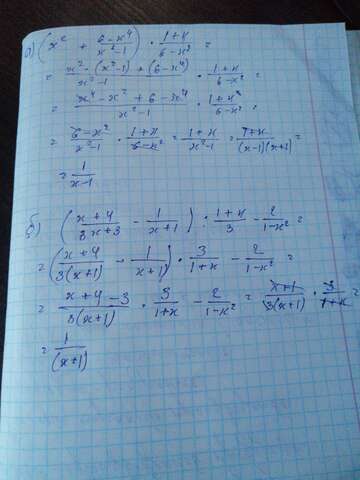 а) (x² + (6-x⁴)/(x²-1)) · (1+x)/(6-x²) =
= (x²-(x²-1)+(6-x⁴))/(x²-1) · (1+x)/(6-x²) =
= (x⁴-x²+6-x⁴)/(x²-1) · (1+x)/(6-x²) =
= (6-x²)/(x²-1) · (1+x)/(6-x²) = (1+x)/(x²-1) = (1+x)/((x-1)(x+1)) =
= 1/(x-1)
б) ((x+4)/(3x+3) - 1/(x+1)) : (1+x)/3 - 2/(1-x²) =
= ((x+4)/(3(x+1)) - 1/(x+1)) · 3/(1+x) - 2/(1-x²) =
= (x+4-3)/(3(x+1)) · 3/(1+x) - 2/(1-x²) = (x+1)/(3(x+1)) · 3/(1+x) =
= 1/(x+1)